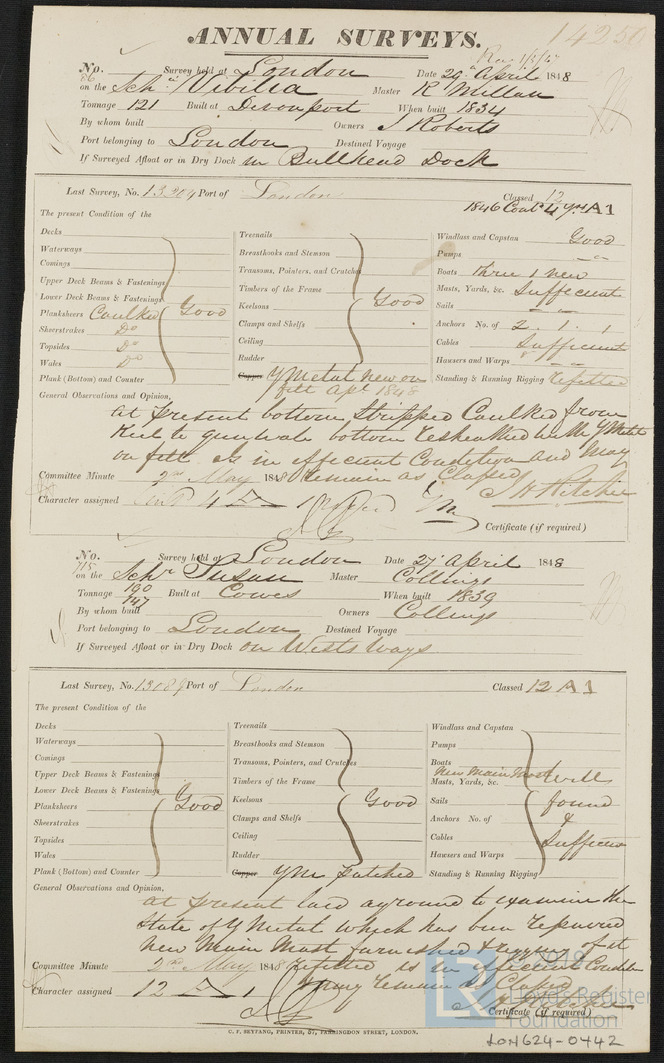 14250
ANNUAL SURVEYS.
No. 86 Survey held at London Date 29 April 1848
on the Schr Vibilia Master R Millan
Tonnage 121 Built at Devonport When built 1834
By whom built Owners J Roberts
Port belonging to London Destined Voyage
If Surveyed Afloat or in Dry Dock in Bullhead Dock
Last Survey, No. 13309 Port of London Classed 12
1846 Cont 4 yrs A1
The present Condition of the
Decks
Waterways
Comings
Upper Deck Beams & Fastenings
Lower Deck Beams & Fastenings
Planksheers Caulked Good
Sheerstrakes Do
Topsides Do
Wales Do
Plank (Bottom) and Counter
Treenails
Breasthooks and Stemson
Transoms, Pointers, and Crutches
Timbers of the Frame
Keelsons Good
Clamps and Shelfs
Ceiling
Rudder
Copper Y Metal new on
felt Apl 1848
Windlass and Capstan Good
Pumps
Boats three 1 new
Masts, Yards, &c. Sufficient
Sails
Anchors No. of 2. 1. 1
Cables Sufficient
Hawsers and Warps
Standing & Running Rigging refitted
General Observations and Opinion,
at present bottom Stripped Caulked from
Keel to gunwale bottom resheathed with Y Metal
on felt. Is in efficient Condition and may
Committee Minute 2nd May 1848 remain as Classed
Character assigned 4 A 1
Certificate (if required)
No. 715 Survey held at London Date 27 April 1848
on the Schr Susan Master Collings
Tonnage 190
147 Built at Cowes When built 1839
By whom built Owners Collings
Port belonging to London Destined Voyage
If Surveyed Afloat or in Dry Dock on Wests Ways
Last Survey, No. 13089 Port of London Classed 12 A1
The present Condition of the
Decks
Waterways
Comings
Upper Deck Beams & Fastenings
Lower Deck Beams & Fastenings
Planksheers Good
Sheerstrakes
Topsides
Wales
Plank (Bottom) and Counter
Treenails
Breasthooks and Stemson
Transoms, Pointers, and Crutches
Timbers of the Frame
Keelsons Good
Clamps and Shelfs
Ceiling
Rudder
Copper YM Patched
Windlass and Capstan
Pumps
Boats
New Main Mast
Masts, Yards, &c. well
Sails found
Anchors No. of &
Cables Sufficient
Hawsers and Warps
Standing & Running Rigging
General Observations and Opinion,
at present laid aground to examine the
State of Y Metal which has been repaired
New Main Mast furnished & rigging of it
Committee Minute 2nd May 1848 refitted is in efficient Condition
may remain as Classed
Character assigned 12 A 1
Certificate (if required)
C. F. SEYFANG, PRINTER, 57, FARRINGDON STREET, LONDON.
LR © 2019
Lloyd's Register
Foundation
LON624-0442